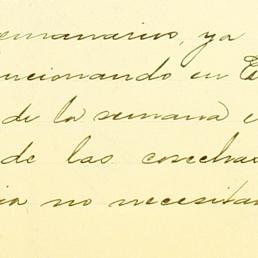 semanarios, ya
funcionando en E
de la semana e
de las cosecha
ia no necesitar